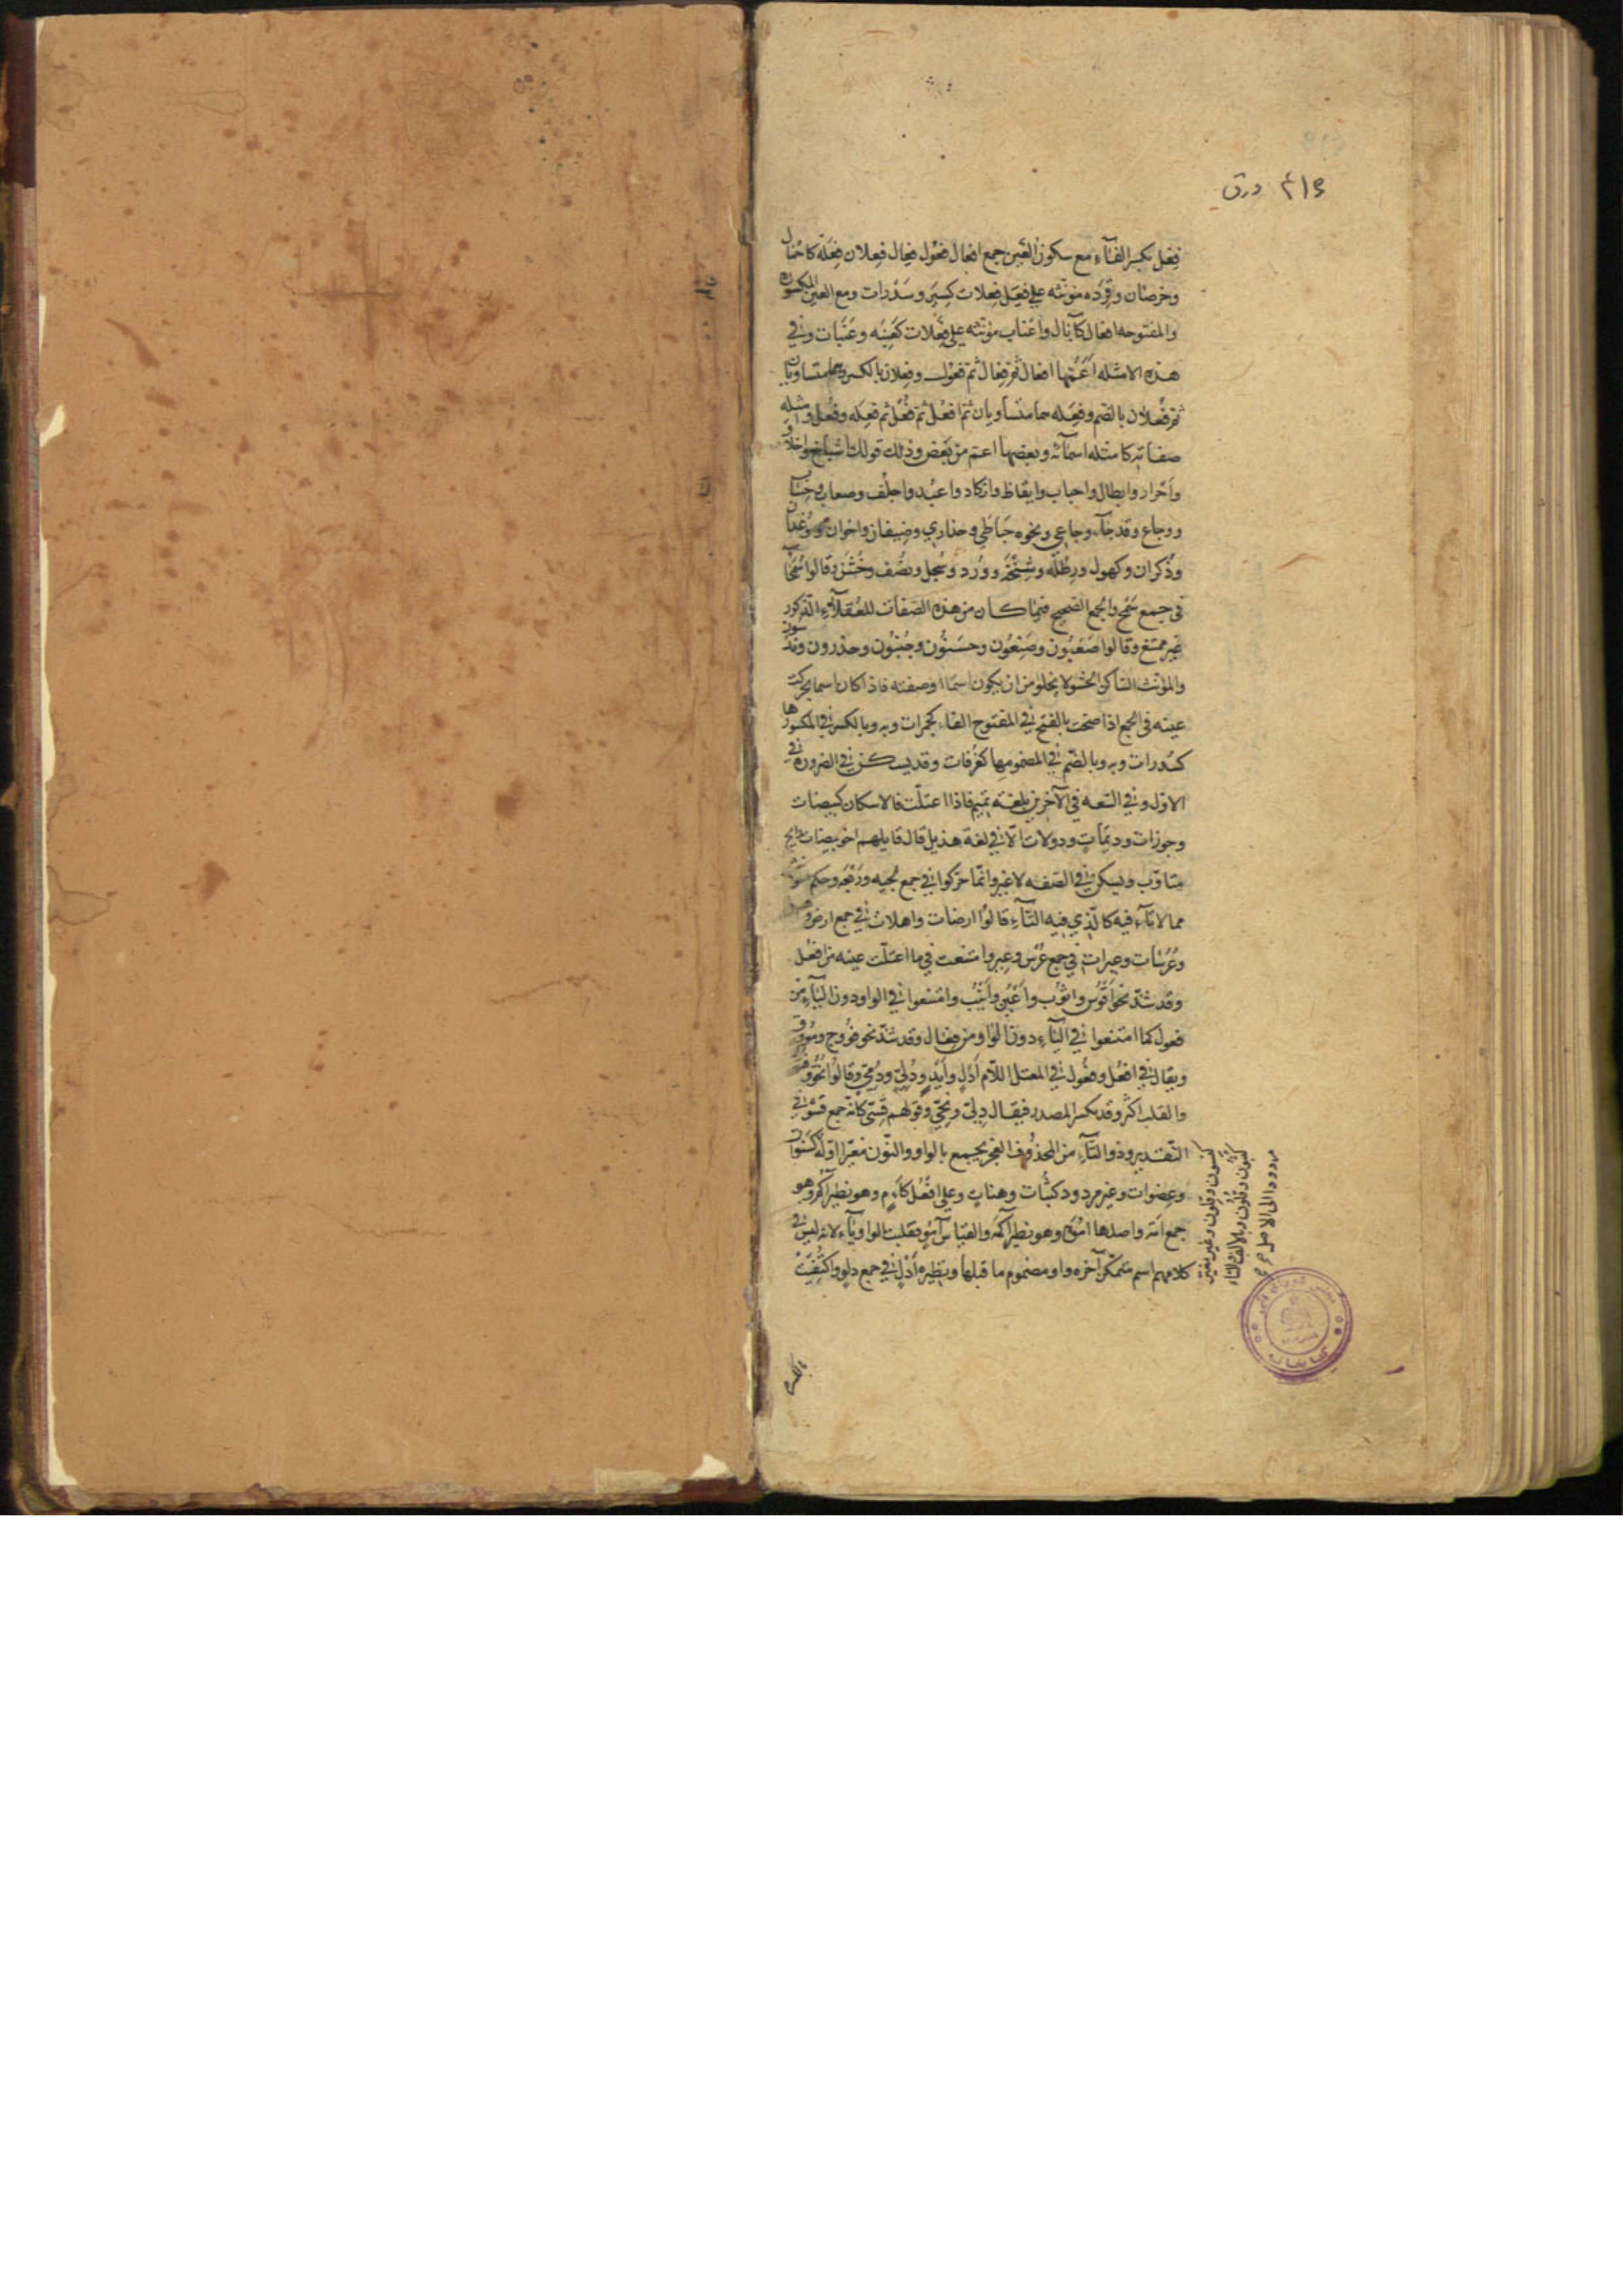 ۴۱۶ ورق
فِعْل بكسر الفآء مع سكون العين جمع افعال فعُول فِعال فِعلان فِعَلَة كاحْمال
وخرصان وقِرَده مونثه علي فِعَل فِعلات كِسِيَر وسَدْرات ومع العين المكسوره
والمفتوحه افعال كآبال واعْناب مونثه علي فِعَلات كَعِنَبه وعِنَبات وفي
هذه الامثله اَعَمُّها افعال ثم فِعَال ثم فعُول وفِعلان بالكسر وهما متساويان
ثم فُعلان بالضم وفِعَله هما متساويان ثم افعُل ثم فُعُل ثم فِعَله وفُعْل وامثله
صفاته كامثله اسمآئه وبعضها اعم من بعض وذلك قولك اشياخ واخلاق
واَحْرار وابطال واجناب وايقاظ وانكاد واعبُد واجلُف وصعاب وحِسان
ووجاع وقد جآء وجاعي ونحوه حَباطَي وحذاري وضيفان واخوان ووغدان
وذُكران وكهول ورطَلَه وشِيخَه ووُرد وسُحل ونُصُف وخُشُن وقالوا سُمَحآء
في جمع سَمْح والجمع الصحيح فيما كان من هذه الصفات للعُقلآءِ الذكور
غير ممتنع وقالوا صَعبُون وصَنِعُون وحسَنُون وجُنُبُون وحذرون وندسُون
والمؤنث الساكن الحَشْو لا يخلو من ان يكون اسما او صفته فاذا كان اسما تحركت
عينه في الجمع اذا صحّت بالفتح في المفتوح الفآء كجمرات وبه وبالكسر في المكسورها
كسِدرات وبه وبالضّم في المضمومها كغُرفات وقد يسكن في الضروره في
الاوّل وفي السعه في الآخرين بلغة تميم فاذا اعتلّت فالاسكان كبيضات
وجوزات وديمَات ودولات الّا في لغة هذيل قال قايلهم اخو بيضات رايح
متاوّب ويسكن في الصّفه لا غير وانّما حرّكوا في جمع لَجبه ورَبْعَه وحكم
مما لا تآء فيه كالّذي فيه التّآء قالُوا ارضات واهلات في جمع ارض و
وعُرُسات وعيرات في جمع عُرْس وعير وامتنعت في ما اعتلّت عينه من افعُل
وقد شذّ نحو اَقْوُس واثوُب واَعْيُن واَنْيُب وامتنعوا في الواو دون اليآء من
فعول كما امتنعوا في اليآء دون الواو من فعال وقد شذّ نحو فوُوج وسُووق
ويقال في افعُل وفعُول في المعتل اللّام اَدْلٍ واَيْدٍ ودُلِيّ ودُمِيّ وقالوا نُحُوّ
والقلب اكثر وقد يكسر الصدر فيقال دِلِيّ ونِحِيّ وقولهم قِسِيّ كانّه جمع قَسْو في
التّقدير وذو التآء من المحذُوف العَجُز يجمع بالواو والنّون مغيّرا اوّله كسنون
وقلون وغير مغيّر
كثبون وقلون وبالالف والتآء
مردودا الى الاصل صح
وعِضوات وغير مردود كثُبات وهنات وعلي افعُل كآمٍ وهو نظير آكُم وهو
جمع اَمَة واصلها اَمَوَة وهو نظير اَكَمَة والقياس آمُوٌ فقلبت الواو يآء لانه ليس في
كلامهم اسم متمكّن آخره واو مضموم ما قبلها ونظيره اَدْلٍ في جمع دلو واكتُفيت
بالكسره